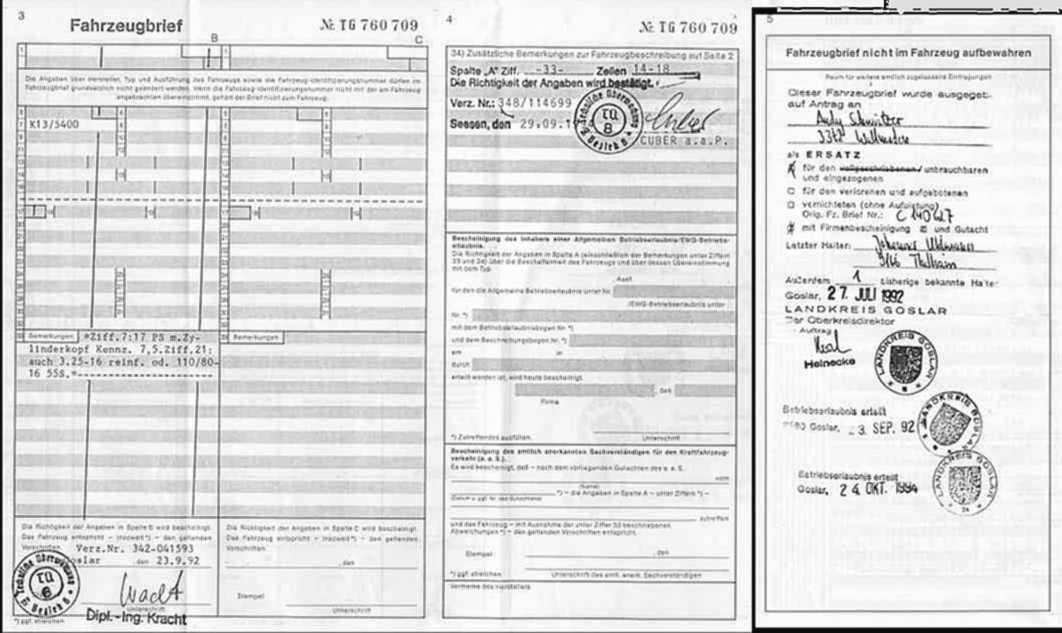 3
Fahrzeugbrief
№ TG 760 709
B
C
Die Angaben über Hersteller, Typ und Ausführung des Fahrzeugs sowie die Fahrzeug-Identifizierungsnummer dürfen im
Fahrzeugbrief grundsätzlich nicht geändert werden. Wenn die Fahrzeug-Identifizierungsnummer nicht mit der am Fahrzeug
angebrachten übereinstimmt, gehört der Brief nicht zum Fahrzeug.
K13/5400
Bemerkungen *Ziff.7:17 PS m.Zy-
linderkopf Kennz. 7,5.Ziff.21:
auch 3.25-16 reinf. od. 110/80-
16 55S.*
Bemerkungen
Die Richtigkeit der Angaben in Spalte B wird bescheinigt.
Das Fahrzeug entspricht – insoweit *) – den geltenden
Vorschriften. Verz.Nr. 342-041593
Goslar , den 23.9.92
Unterschrift
Dipl.-Ing. Kracht
*) ggf. streichen
Die Richtigkeit der Angaben in Spalte C wird bescheinigt.
Das Fahrzeug entspricht – insoweit *) – den geltenden
Vorschriften.
, den
Stempel
Unterschrift
4
№ TG 760 709
34) Zusätzliche Bemerkungen zur Fahrzeugbeschreibung auf Seite 2
Spalte „A" Ziff. -33- Zeilen 14-18
Die Richtigkeit der Angaben wird bestätigt.
Verz. Nr.: 348/114699
Seesen, den 29.09.
CUBER a.a.P.
Bescheinigung des Inhabers einer Allgemeinen Betriebserlaubnis/EWG-Betriebs-
erlaubnis.
Die Richtigkeit der Angaben in Spalte A (einschließlich der Bemerkungen unter Ziffern
33 und 34) über die Beschaffenheit des Fahrzeugs und über dessen Übereinstimmung
mit dem Typ
, Ausf.
für den die Allgemeine Betriebserlaubnis unter Nr.
/EWG-Betriebserlaubnis unter
Nr. *)
mit dem Betriebserlaubnisbogen Nr. *)
und dem Beschreibungsbogen Nr. *)
am in
durch
erteilt worden ist, wird heute bescheinigt.
, den
Firma
*) Zutreffendes ausfüllen.
Unterschrift
Bescheinigung des amtlich anerkannten Sachverständigen für den Kraftfahrzeug-
verkehr (a. a. S.).
Es wird bescheinigt, daß – nach dem vorliegenden Gutachten des a. a. S.
vom
(Name)
*) – die Angaben in Spalte A – unter Ziffern *) –
zutreffen
und das Fahrzeug – mit Ausnahme der unter Ziffer 33 beschriebenen
Abweichungen *) – den geltenden Vorschriften entspricht.
Stempel
, den
*) ggf. streichen
Unterschrift des amtl. anerk. Sachverständigen
Vermerke des Herstellers
5
Fahrzeugbrief nicht im Fahrzeug aufbewahren
Raum für weitere amtlich zugelassene Eintragungen
Dieser Fahrzeugbrief wurde ausgegeb.
auf Antrag an
als ERSATZ
für den vollgeschriebenen/ unbrauchbaren
und eingezogenen
für den verlorenen und aufgebotenen
vernichteten (ohne Aufbietung)
Orig. Fz. Brief Nr.:
mit Firmenbescheinigung und Gutacht
Letzter Halter:
Außerdem 1 bisherige bekannte Halter
Goslar, 27. JULI 1992
LANDKREIS GOSLAR
Der Oberkreisdirektor
Auftrag
Heinecke
LANDKREIS GOSLAR
Betriebserlaubnis erteilt
Goslar, 23. SEP. 92
LANDKREIS GOSLAR
Betriebserlaubnis erteilt
Goslar, 24. OKT. 1994
LANDKREIS GOSLAR